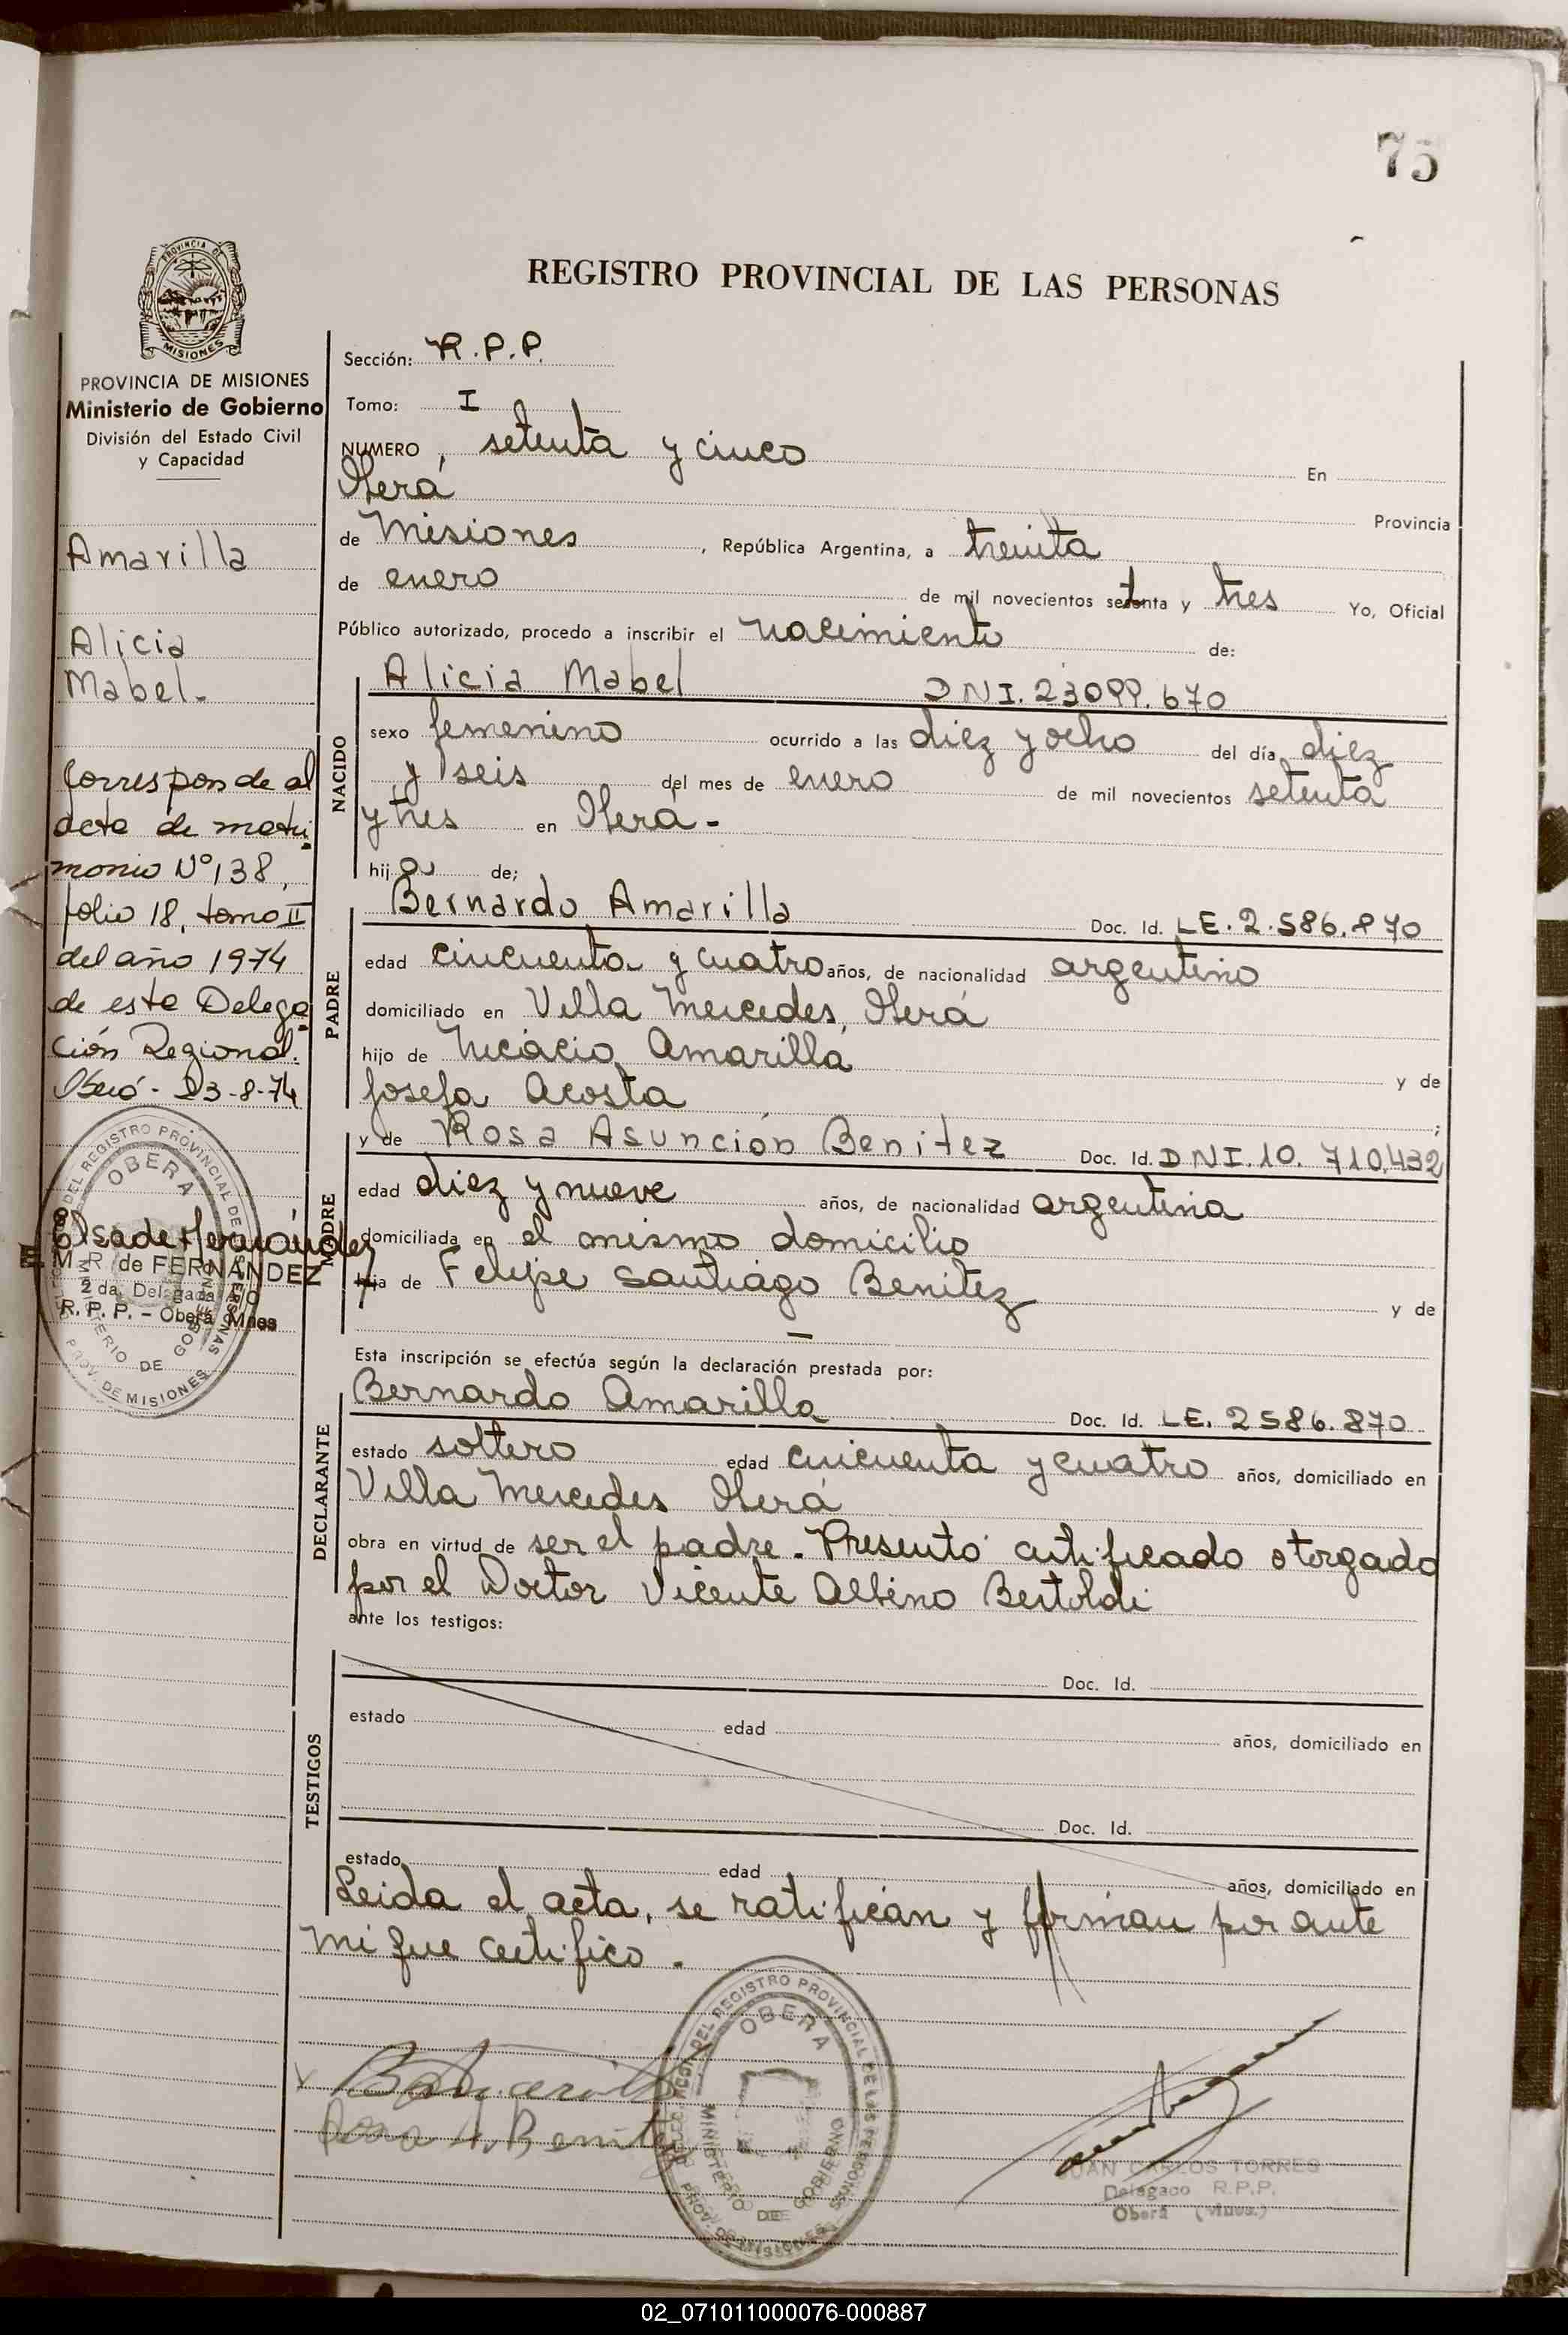 75
REGISTRO PROVINCIAL DE LAS PERSONAS
PROVINCIA DE MISIONES
Ministerio de Gobierno
División del Estado Civil
y Capacidad
Amarilla
Alicia
Mabel-
Corresponde al
acta de matri
monio Nº 138,
folio 18, tomo II
del año 1974
de esta Delega
ción Regional.
Oberá - 23-8-74
OBERA
M. R. de FERNANDEZ
2da. Delegada
R. P. P. - Oberá Mnes
Sección: R.P.P.
Tomo: I
NUMERO, setenta y cinco En
Oberá Provincia
de Misiones, República Argentina, a treinta
de enero de mil novecientos setenta y tres Yo, Oficial
Público autorizado, procedo a inscribir el nacimiento de:
NACIDO
Alicia Mabel DNI. 23099.670
sexo femenino ocurrido a las diez y ocho del día diez
y seis del mes de enero de mil novecientos setenta
y tres en Oberá-
hija de;
PADRE
Bernardo Amarilla Doc. Id. LE. 2.586.870
edad cincuenta y cuatro años, de nacionalidad argentino
domiciliado en Villa Mercedes, Oberá
hijo de Nicacio Amarilla y de
Josefa Acosta ;
MADRE
y de Rosa Asunción Benitez Doc. Id. DNI. 10. 710.432
edad diez y nueve años, de nacionalidad argentina
domiciliada en el mismo domicilio
hija de Felipe Santiago Benitez y de
—
Esta inscripción se efectúa según la declaración prestada por:
DECLARANTE
Bernardo Amarilla Doc. Id. LE. 2586.870
estado soltero edad cincuenta y cuatro años, domiciliado en
Villa Mercedes Oberá
obra en virtud de ser el padre. Presentó certificado otorgado
por el Doctor Vicente Albino Bertoldi
ante los testigos:
TESTIGOS
Doc. Id.
estado edad años, domiciliado en
Doc. Id.
estado edad años, domiciliado en
Leida el acta, se ratifican y firman por ante
mi que certifico.
OBERA
MINISTERIO DE GOBIERNO
Rosa A. Benitez
JUAN CARLOS TORRES
Delegado R.P.P.
Oberá (Mnes.)
02_071011000076-000887